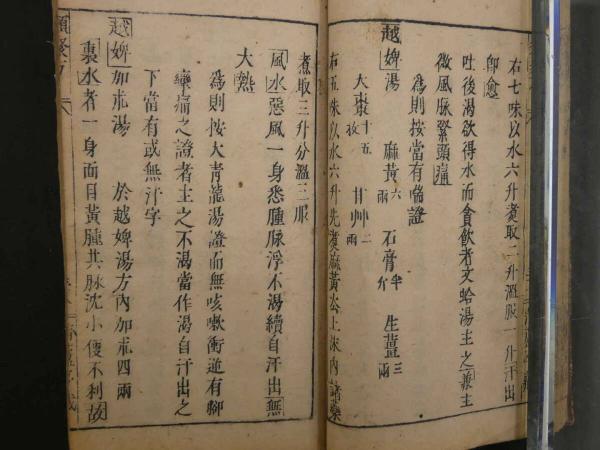 右七味以水六升煮取二升溫服一升汗出
卽愈
吐後渴欲得水而貪飲者文蛤湯主之兼主
微風脉緊頭痛
爲則按當有喘證
越婢湯 麻黃六兩 石膏半斤 生薑三兩
大棗十五枚 甘艸二兩
右五味以水六升先煮麻黃去上沫內諸藥
煮取三升分溫三服
風水惡風一身悉腫脉浮不渴續自汗出無
大熱
爲則按大靑龍湯證而無咳嗽衝逆有脚
攣痛之證者主之不渴當作渴自汗出之
下當有或無汗字
越婢加朮湯 於越婢湯方內加朮四兩
裏水者一身面目黃腫其脉沈小便不利故
類聚方